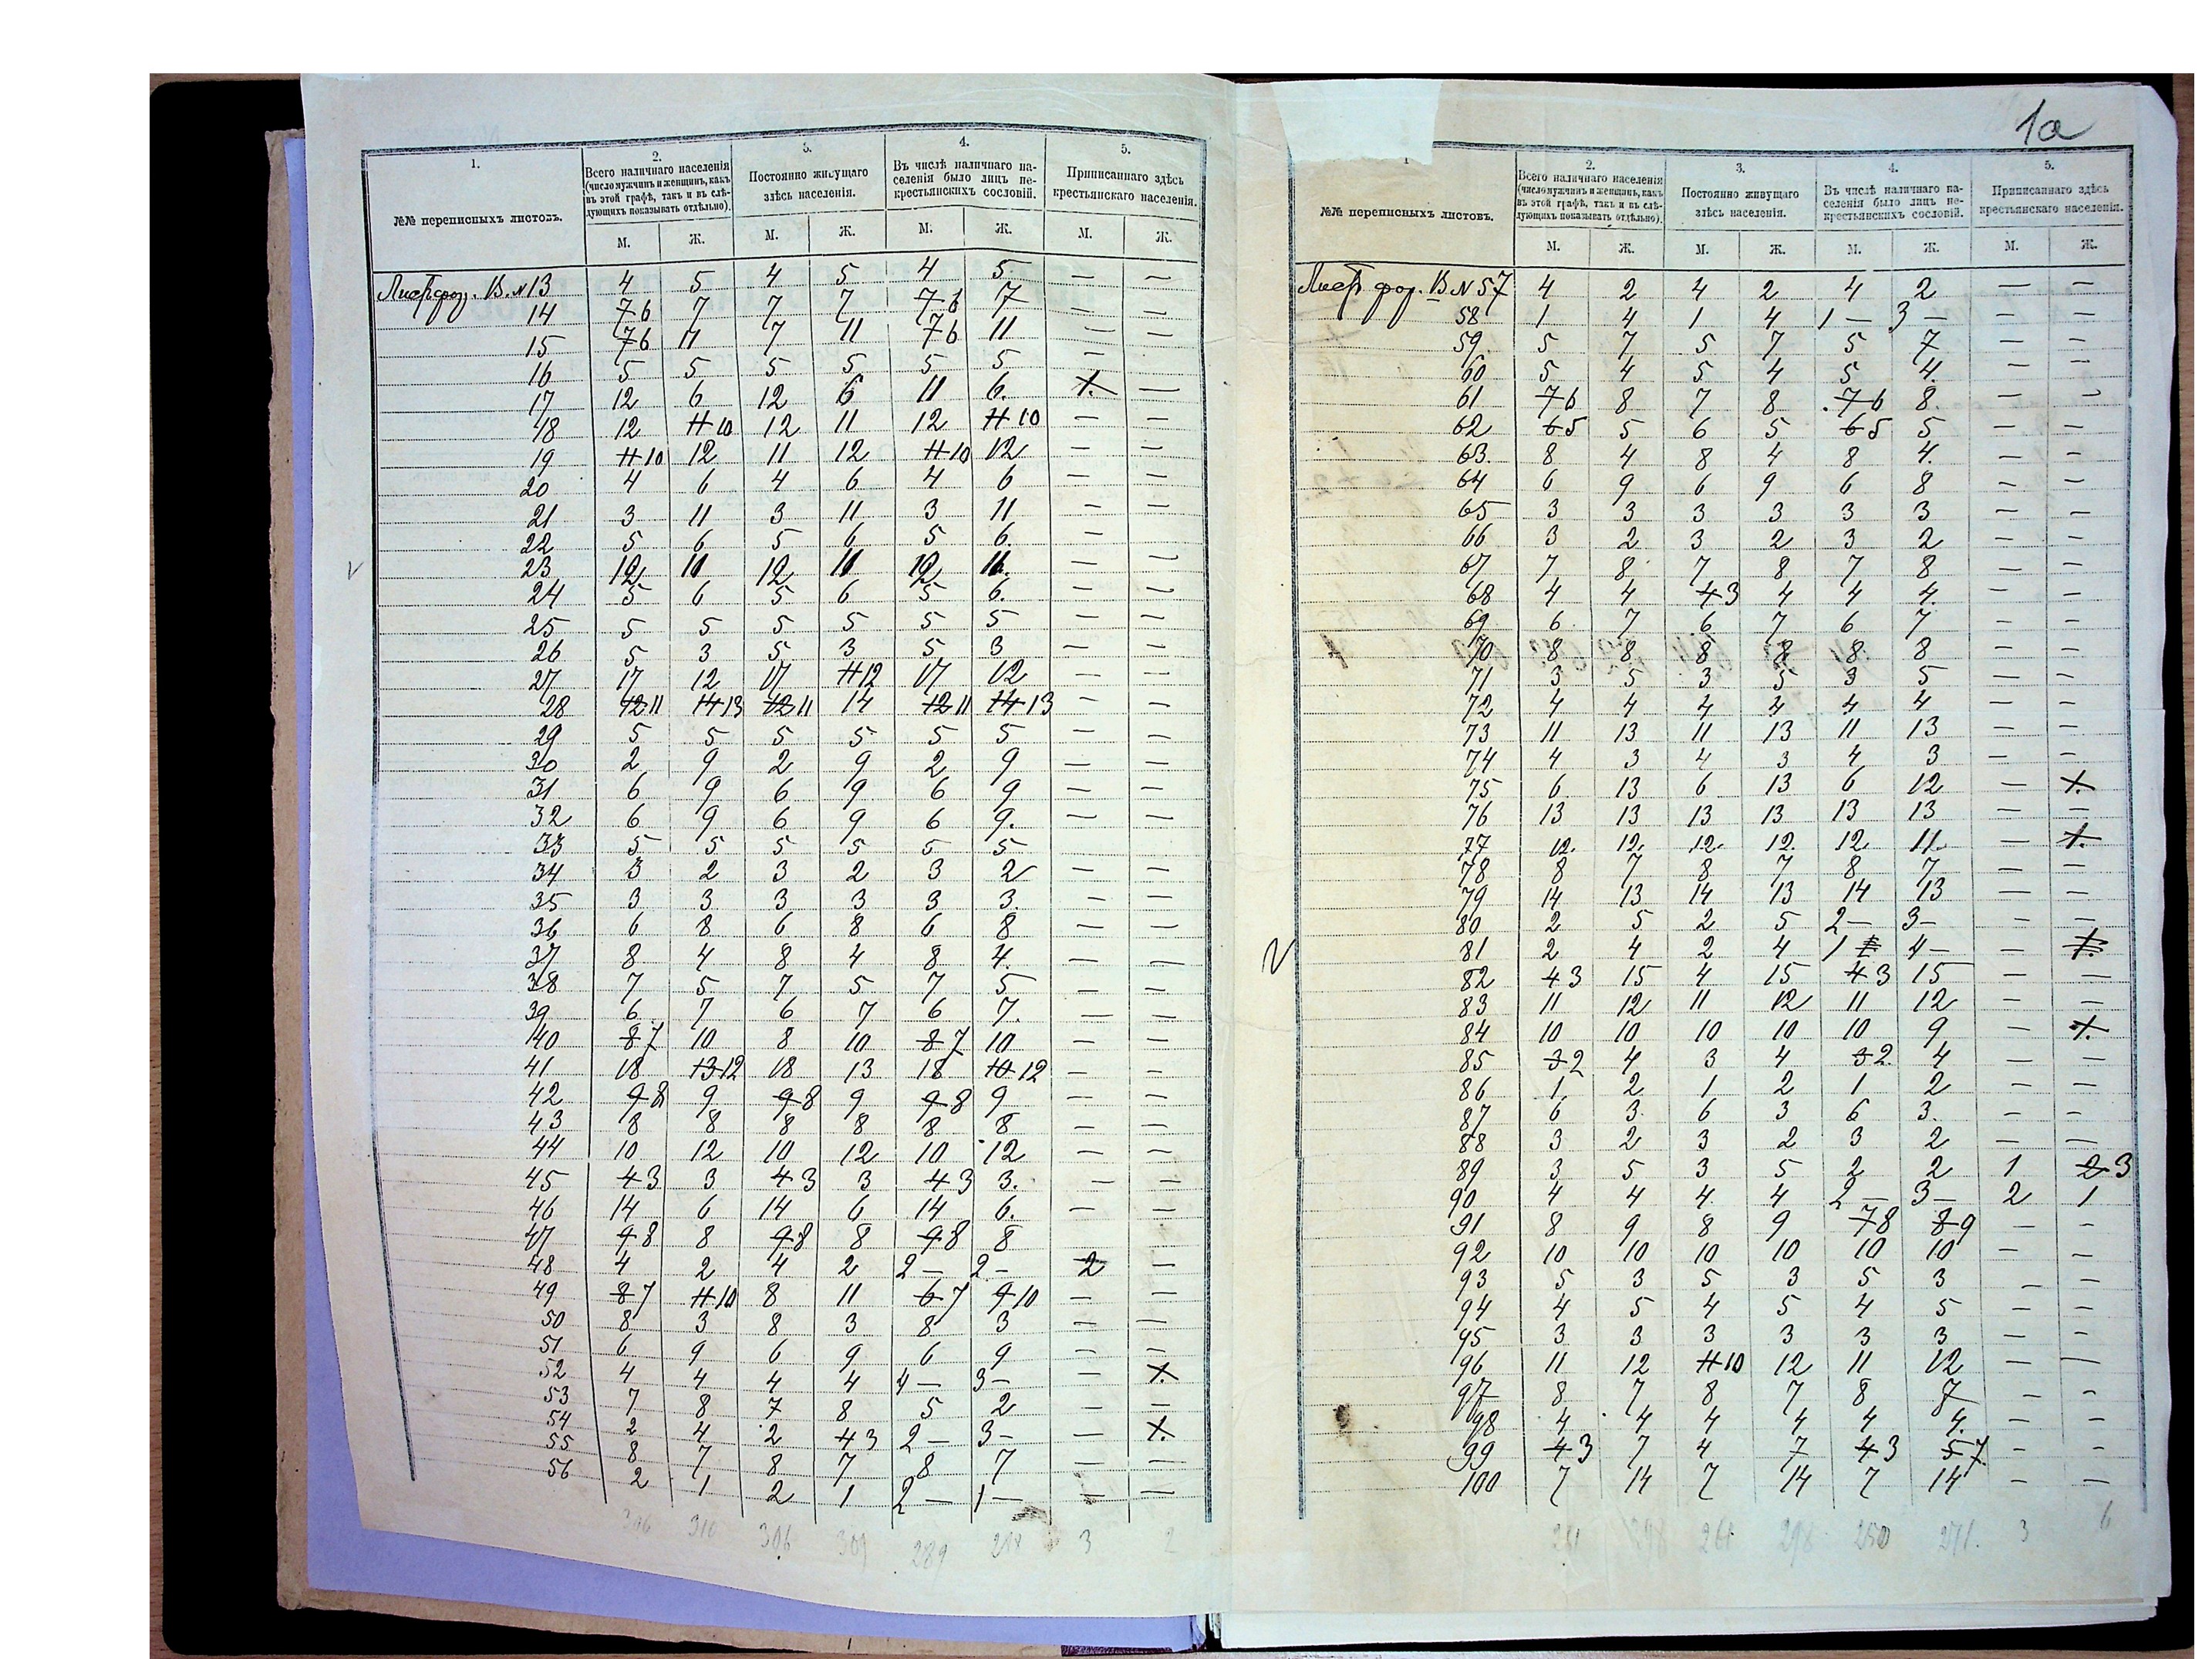 1.
2.
Всего наличнаго населенія
(число мужчинъ и женщинъ, какъ
въ этой графѣ, такъ и въ слѣ-
дующихъ показывать отдѣльно).
3.
Постоянно живущаго
здѣсь населенія.
4.
Въ числѣ наличнаго на-
селенія было лицъ не-
крестьянскихъ сословій.
5.
Приписаннаго здѣсь
крестьянскаго населенія.
№№ переписныхъ листовъ.
М. Ж. М. Ж. М. Ж. М. Ж.
Лист фор. В. № 13 4 5 4 5 4 5 — —
14 7 6 7 7 7 7 6 7 — —
15 7 6 11 7 11 7 6 11 — —
16 5 5 5 5 5 5 —
17 12 6 12 6 11 6. 1. —
18 12 11 10 12 11 12 11 10 — —
19 11 10 12 11 12 11 10 12 — —
20 4 6 4 6 4 6 — —
21 3 11 3 11 3 11 — —
22 5 6 5 6 5 6. — —
23 12 11 12 11 12 11. — —
24 5 6 5 6 5 6. — —
25 5 5 5 5 5 5 — —
26 5 3 5 3 5 3 — —
27 17 12 17 11 12 17 12 — —
28 12 11 14 13 12 11 14 12 11 14 13 — —
29 5 5 5 5 5 5 — —
30 2 9 2 9 2 9 — —
31 6 9 6 9 6 9 — —
32 6 9 6 9 6 9. — —
33 5 5 5 5 5 5
34 3 2 3 2 3 2 — —
35 3 3 3 3 3 3. — —
36 6 8 6 8 6 8 — —
37 8 4 8 4 8 4. — —
38 7 5 7 5 7 5 — —
39 6 7 6 7 6 7. — —
40 8 7 10 8 10 8 7 10 — —
41 18 13 12 18 13 18 12 — —
42 9 8 9 9 8 9 9 8 9 — —
43 8 8 8 8 8 8 — —
44 10 12 10 12 10 12 — —
45 4 3 3 4 3 3 4 3 3. — —
46 14 6 14 6 14 6. — —
47 9 8 8 9 8 8 9 8 8
48 4 2 4 2 2 — 2 — 2 —
49 8 7 11 10 8 11 6 7 9 10 — —
50 8 3 8 3 8 3 — —
51 6 9 6 9 6 9 — —
52 4 4 4 4 4 — 3 — — 1.
53 7 8 7 8 5 2 — —
54 2 4 2 4 3 2 — 3 — — 1.
55 8 7 8 7 8 7 — —
56 2 1 2 1 2 — 1 — — —
306 310 306 309 289 3 2
1а
1
2.
Всего наличнаго населенія
(число мужчинъ и женщинъ, какъ
въ этой графѣ, такъ и въ слѣ-
дующихъ показывать отдѣльно).
3.
Постоянно живущаго
здѣсь населенія.
4.
Въ числѣ наличнаго на-
селенія было лицъ не-
крестьянскихъ сословій.
5.
Приписаннаго здѣсь
крестьянскаго населенія.
№№ переписныхъ листовъ.
М. Ж. М. Ж. М. Ж. М. Ж.
Лист фор. В № 57 4 2 4 2 4 2 — —
58 1 4 1 4 1 — 3 — — —
59 5 7 5 7 5 7 — —
60 5 4 5 4 5 4. — —
61 7 6 8 7 8 7 6 8. — —
62 6 5 5 6 5 6 5 5 — —
63. 8 4 8 4 8 4. — —
64 6 9 6 9 6 8 — —
65 3 3 3 3 3 3 — —
66 3 2 3 2 3 2 — —
67 7 8 7 8 7 8 — —
68 4 4 4 3 4 4 4. — —
69 6 7 6 7 6 7 — —
70 8 8 8 8 8 8 — —
71 3 5 3 5 3 5 — —
72 4 4 4 4 4 4 — —
73 11 13 11 13 11 13 — —
74 4 3 4 3 4 3 — —
75 6 13 6 13 6 12 — 1.
76 13 13 13 13 13 13 — —
77 12. 12. 12. 12. 12 11. — 1.
78 8 7 8 7 8 7 — —
79 14 13 14 13 14 13 — —
80 2 5 2 5 2 — 3 — — —
81 2 4 2 4 1 4 — — 1.
82 4 3 15 4 15 4 3 15 — —
83 11 12 11 12 11 12 — —
84 10 10 10 10 10 9 — 1.
85 3 2 4 3 4 3 2 4 — —
86 1 2 1 2 1 2 — —
87 6 3 6 3 6 3. — —
88 3 2 3 2 3 2 — —
89 3 5 3 5 2 2 1 2 3
90 4 4 4 4 2 — 3 — 2 1
91 8 9 8 9 7 8 8 9 — —
92 10 10 10 10 10 10 — —
93 5 3 5 3 5 3 — —
94 4 5 4 5 4 5 — —
95 3 3 3 3 3 3 — —
96 11 12 11 10 12 11 12 — —
97 8 7 8 7 8 7 — —
98 4 4 4 4 4 4. — —
99 4 3 7 4 7 4 3 5 7. — —
100 7 14 7 14 7 14 — —
261 298 261 298 250 271. 3 6